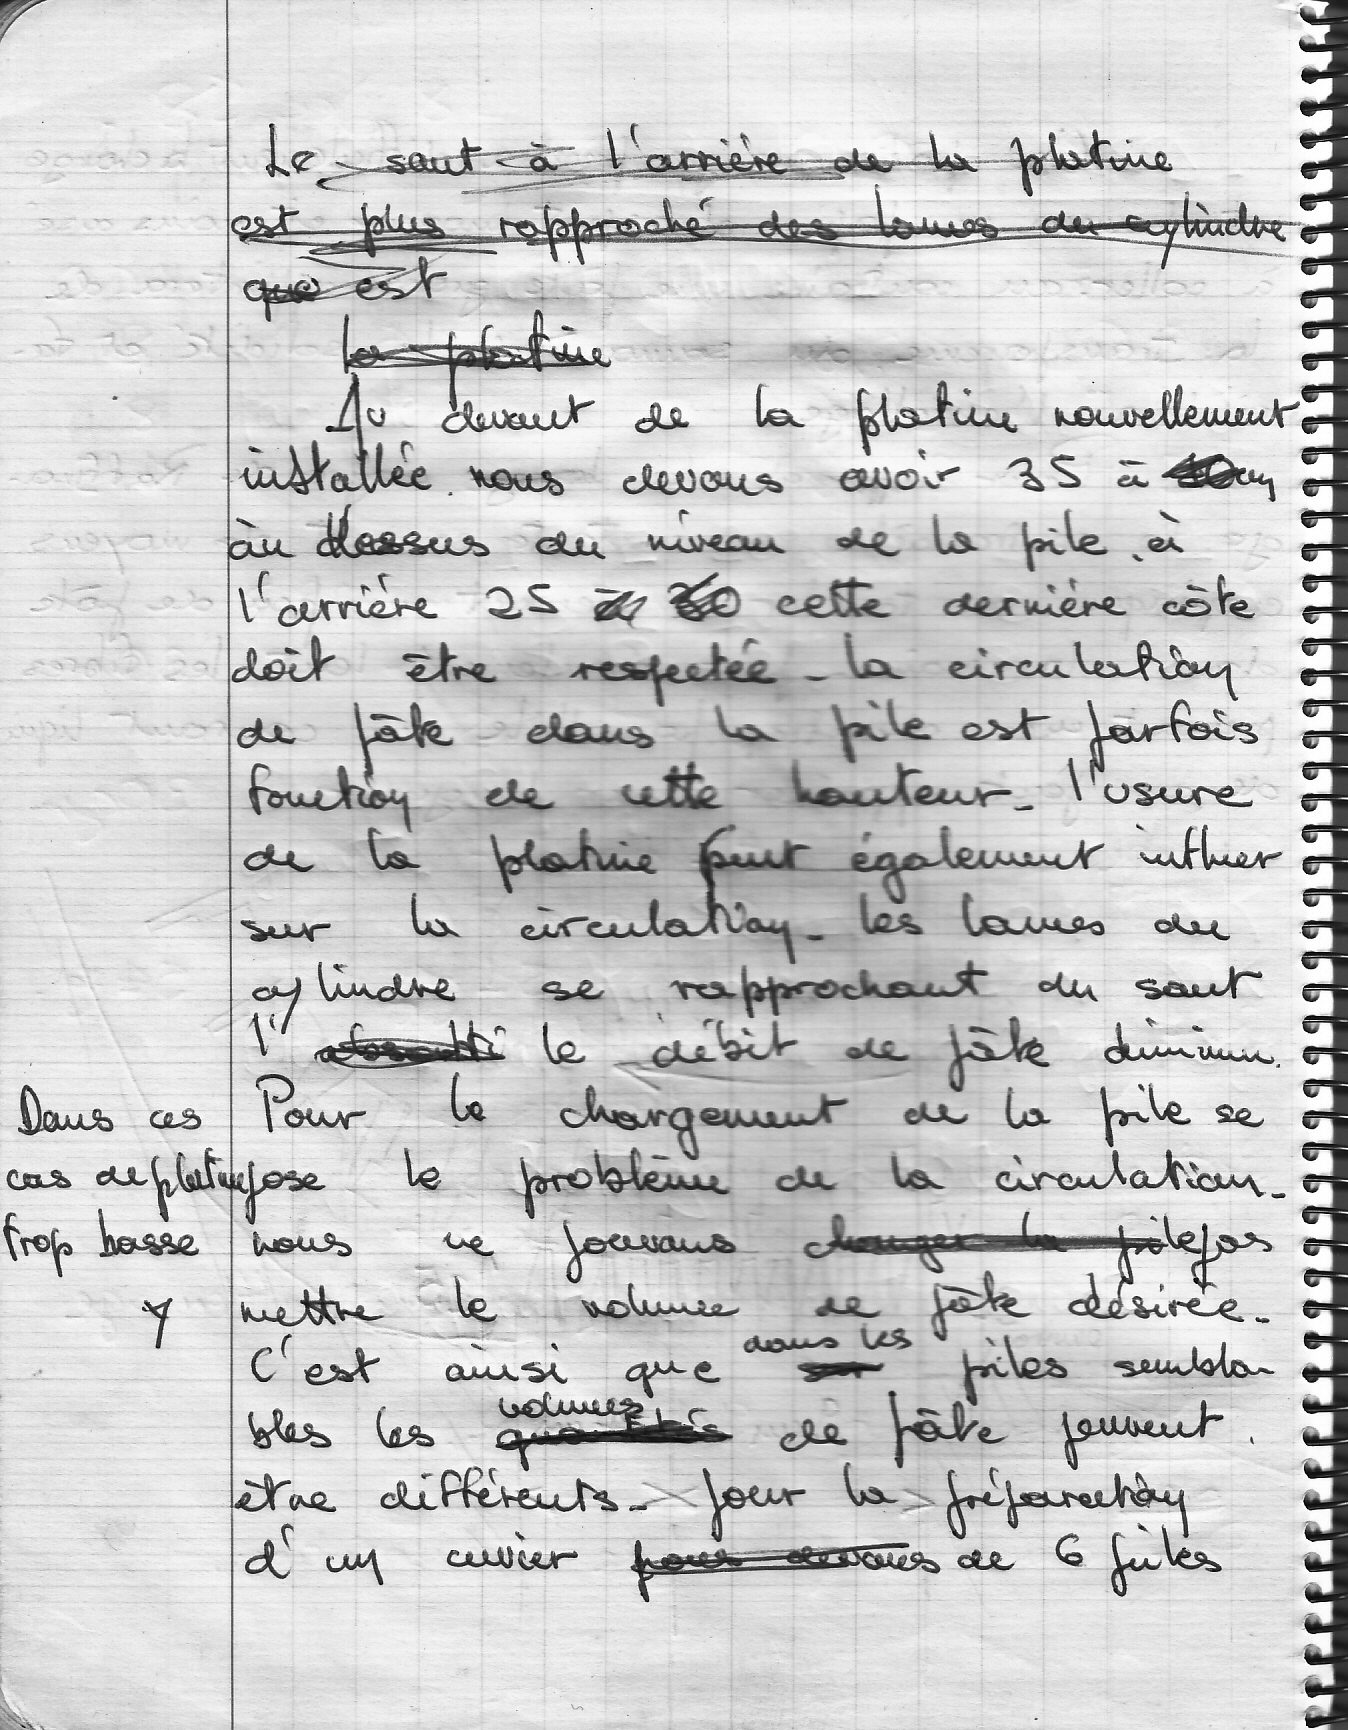 Le saut à l'arrière de la platine
est plus rapproché des lames du cylindre
que est
la platine
Au devant de la platine nouvellement
installée nous devons avoir 35 à 40 cm
au dessus du niveau de la pile. à
l'arriére 25 à 30 cette derniére côte
doit être respectée - la circulation
de pâte dans la pile est parfois
fonction de cette hauteur - l'usure
de la platine peut également influer
sur la circulation - les lames du
cylindre se rapprochant du saut
l' le débit de pâte diminue.
Pour le chargement de la pile se
pose le problème de la circulation -
Dans ces
cas de platine
trop basse
nous ne pouvons changer la pile pas
y mettre le volume de pâte désirée -
C'est ainsi que sur dans les piles sembla
bles les quantités volumes de pâte peuvent
être différents - pour la préparation
d'un cuvier nous devons de 6 piles